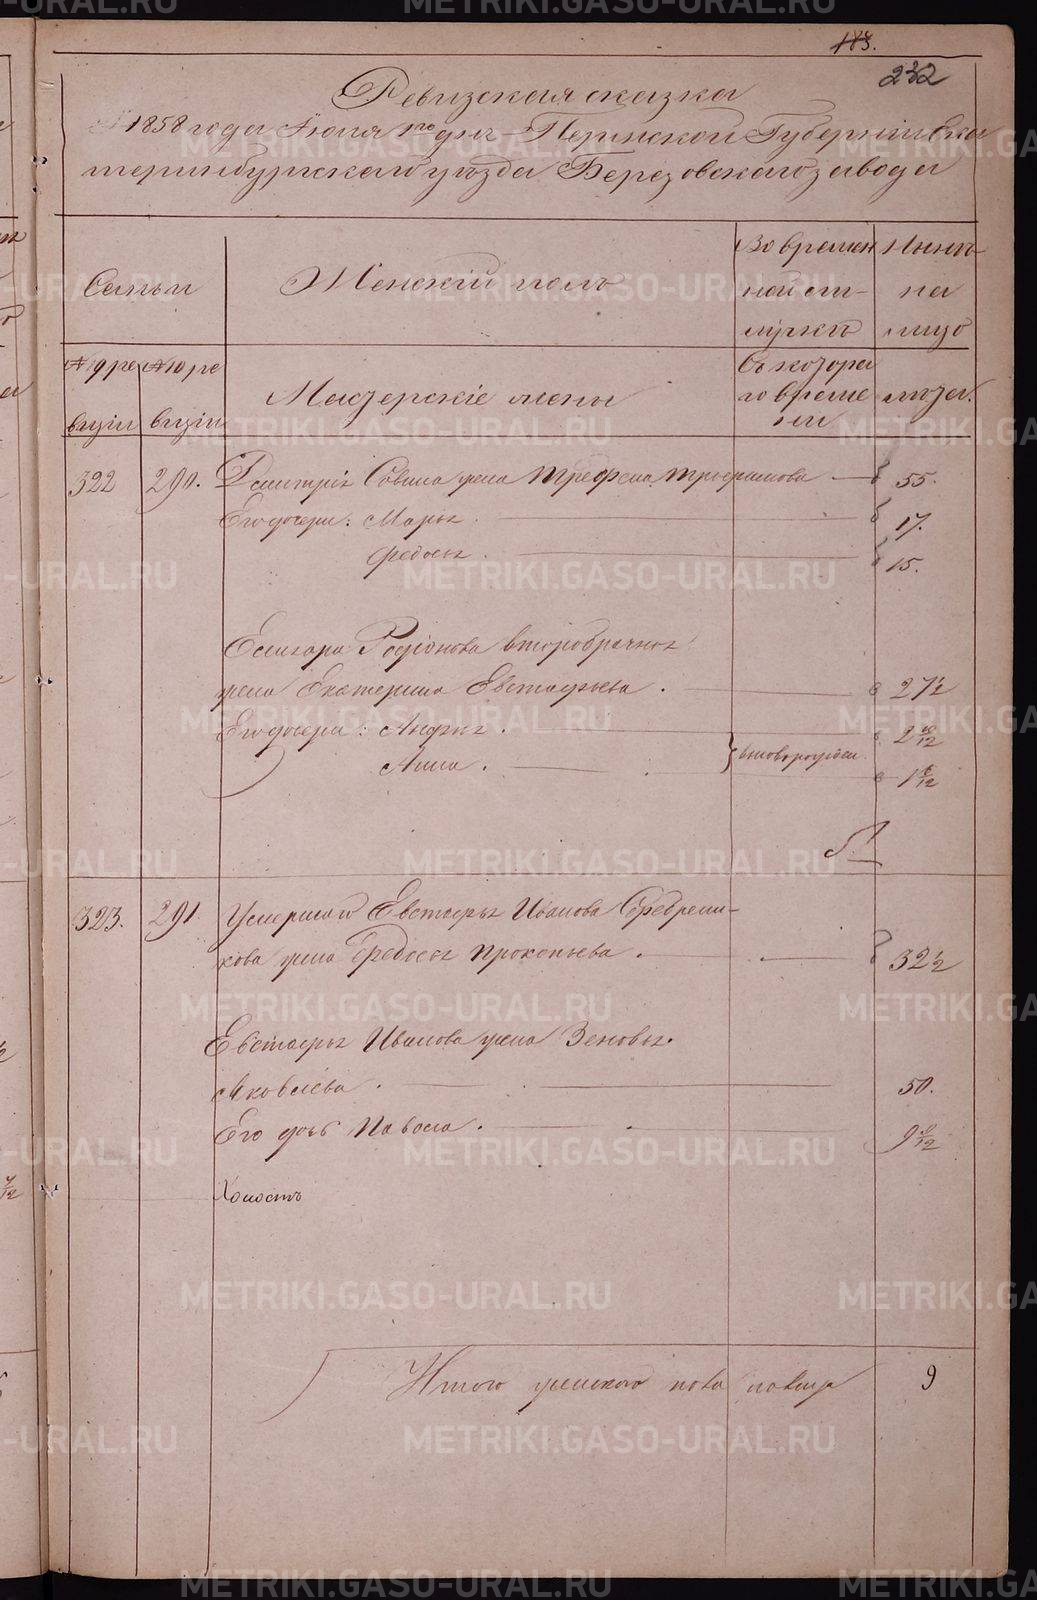 183.
232
Ревизская сказка
1858 года Июля 1го дня Пермской Губернии Ека
теринбургскаго уезда Березовскаго завода
Семьи
Женскій полъ
Во времен
ной от-
лучкѣ
Нынѣ
на
лицо
№ 9 ре
визіи
№ 10 ре
визіи
Мастерскіе жены
Съ котора
го време
ни
лета.
322
290.
Дмитрія Савина жена Трефена Трефимова
55.
Его дочери: Марья
17.
Федосья
15.
Родіонова второбрачная
жена Екатерина Евстафьева
27½
Его дочери: Анна
новорожден
323.
291.
Умершаго Евстафья Иванова Серебрени-
кова жена Федосья Прокопьева
32½
Евстафья Иванова жена Зеновья
Яковлева
50.
Его дочь Павола
Холостъ
Итого женского пола налицо
9
METRIKI.GASO-URAL.RU